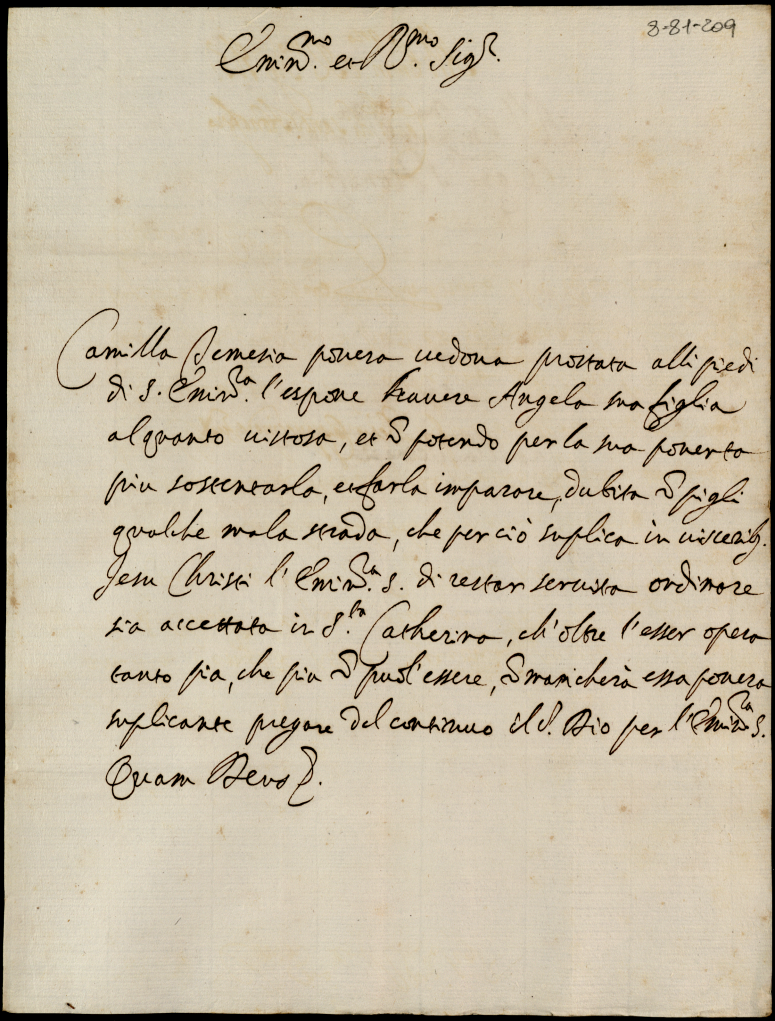 8-81-209
Emin.mo et R.mo Sig.r
Camilla Semesia povera vedova prostata alli piedi
di S. Emin.za l'espone havere Angela sua figlia
alquanto vistosa, et ñ potendo per la sua poverta
piu sostentarla, et farla imparare, dubita ñ pigli
qualche mala strada, che perciò suplica in viscerib.
Jesu Christi l'Emin.za S. di restar servita ordinare
sia accettata in S.ta Catherina, ch'oltre l'esser opera
tanto pia, che piu ñ puol'essere, ñ mancherà essa povera
suplicante pregare del continuo il S. Dio per l'Emin.za S.
Quam Deus